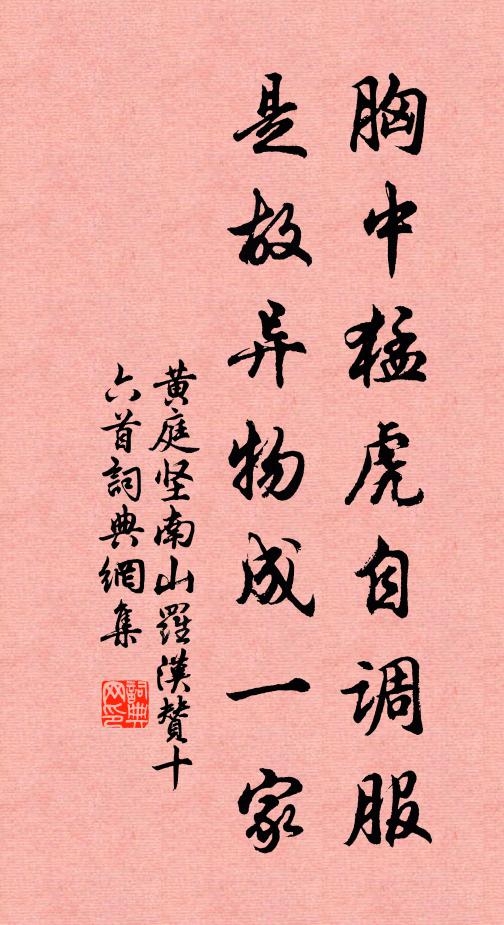 胸中猛虎自调服
是故异物成一家
黄庭坚南山羅漢赞十
六首詞典網集
詞典
网印